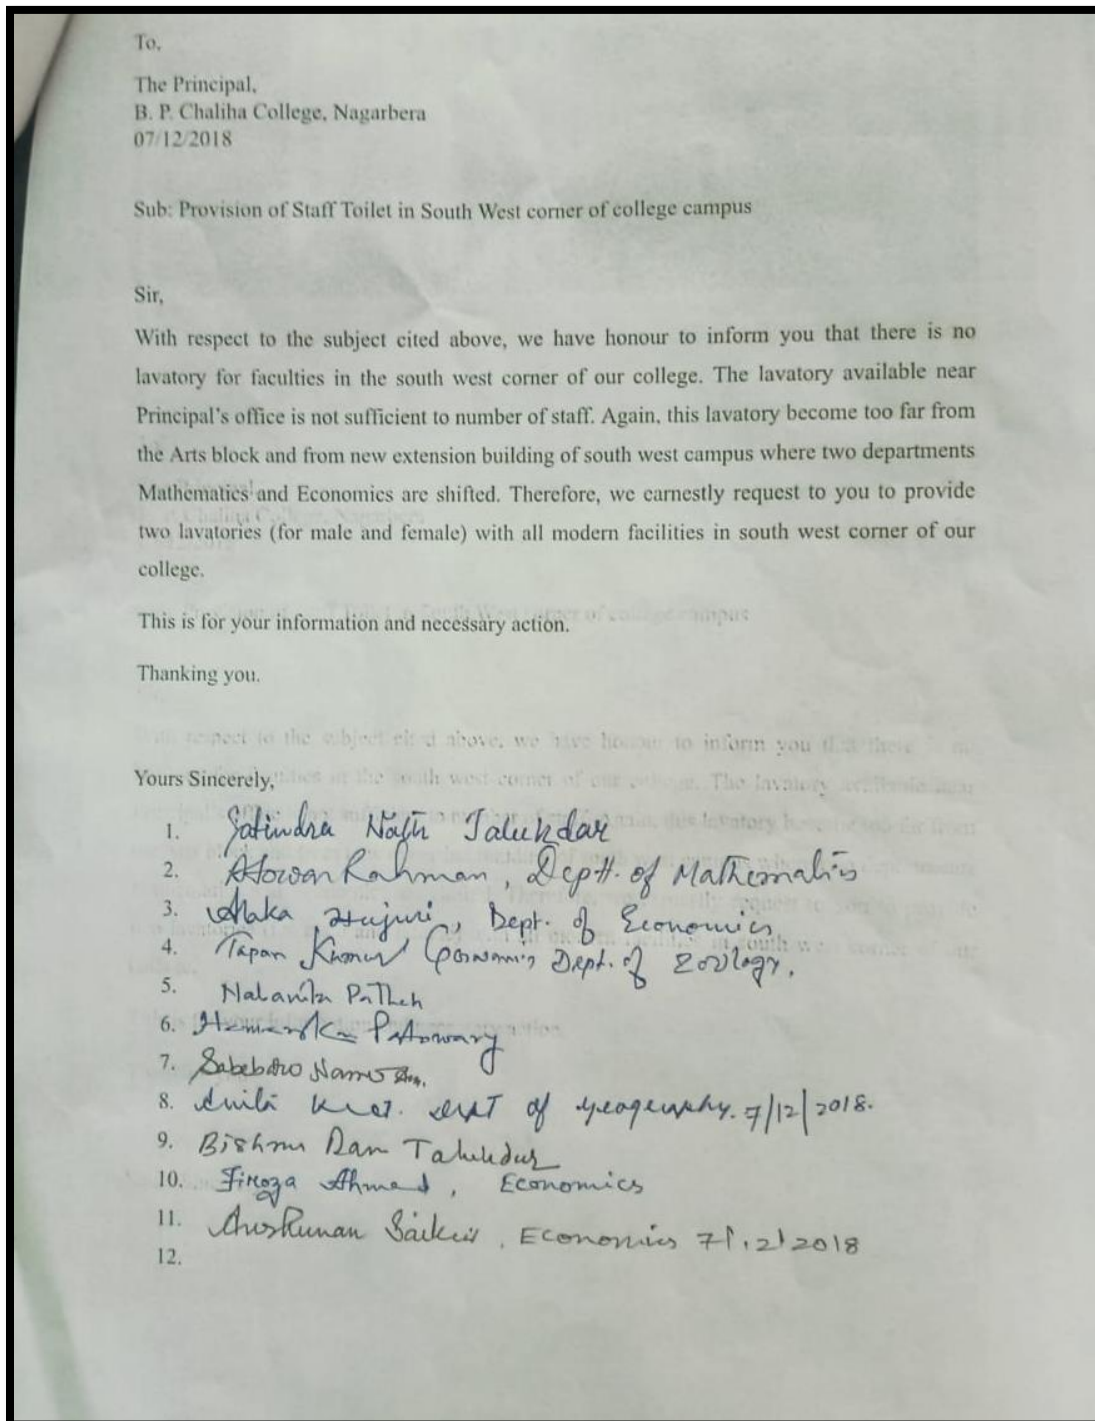 To,
The Principal,
B. P. Chaliha College, Nagarbera
07/12/2018
Sub: Provision of Staff Toilet in South West corner of college campus
Sir,
With respect to the subject cited above, we have honour to inform you that there is no
lavatory for faculties in the south west corner of our college. The lavatory available near
Principal's office is not sufficient to number of staff. Again, this lavatory become too far from
the Arts block and from new extension building of south west campus where two departments
Mathematics and Economics are shifted. Therefore, we earnestly request to you to provide
two lavatories (for male and female) with all modern facilities in south west corner of our
college.
This is for your information and necessary action.
Thanking you.
Yours Sincerely,
1. Jatindra Nath Talukdar
2. Rahman, Deptt. of Mathematics
3. Alaka Hujuri, Dept. of Economics
4. Tapan Kumar Goswami, Dept. of Zoology.
5.
6. Patowary
7.
8. Dept of Geography. 7/12/2018.
9. Bishnu Ram Talukdar
10. Firoza Ahmed, Economics
11. Saikia, Economics 7/12/2018
12.